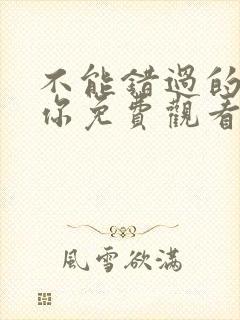 不能錯過的
你免費觀看
風雪欲滿